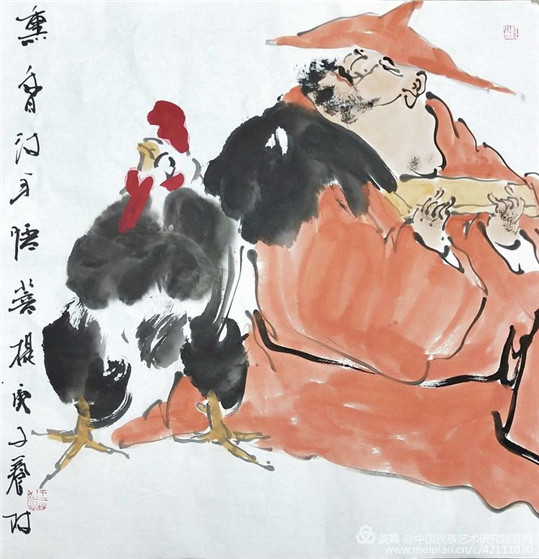 熏香手悟菩提庚子
美篇 @中国民族艺术研究院官网
www.meipian.cn/c/42111020